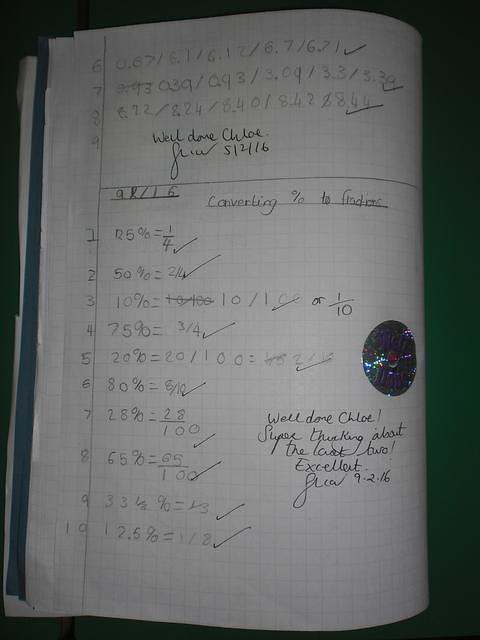 6 0.67/6.1/6.12/6.7/6.71
7 0.93 0.39/0.93/3.09/3.3/3.39
8 8.22/8.24/8.40/8.42 8.44
9
Well done Chloe.
5/2/16
9/2/16
Converting % to fractions
1 25% = 1/4
2 50% = 2/4
3 10% = 10/100 10/100 or 1/10
4 75% = 3/4
5 20% = 20/100 = 2/10
6 80% = 8/10
7 28% = 28/100
8 65% = 65/100
9 33 1/3 % = 1/3
10 12.5% = 1/8
Well done Chloe!
Super thinking about
the last two!
Excellent.
9.2.16
Well
Done